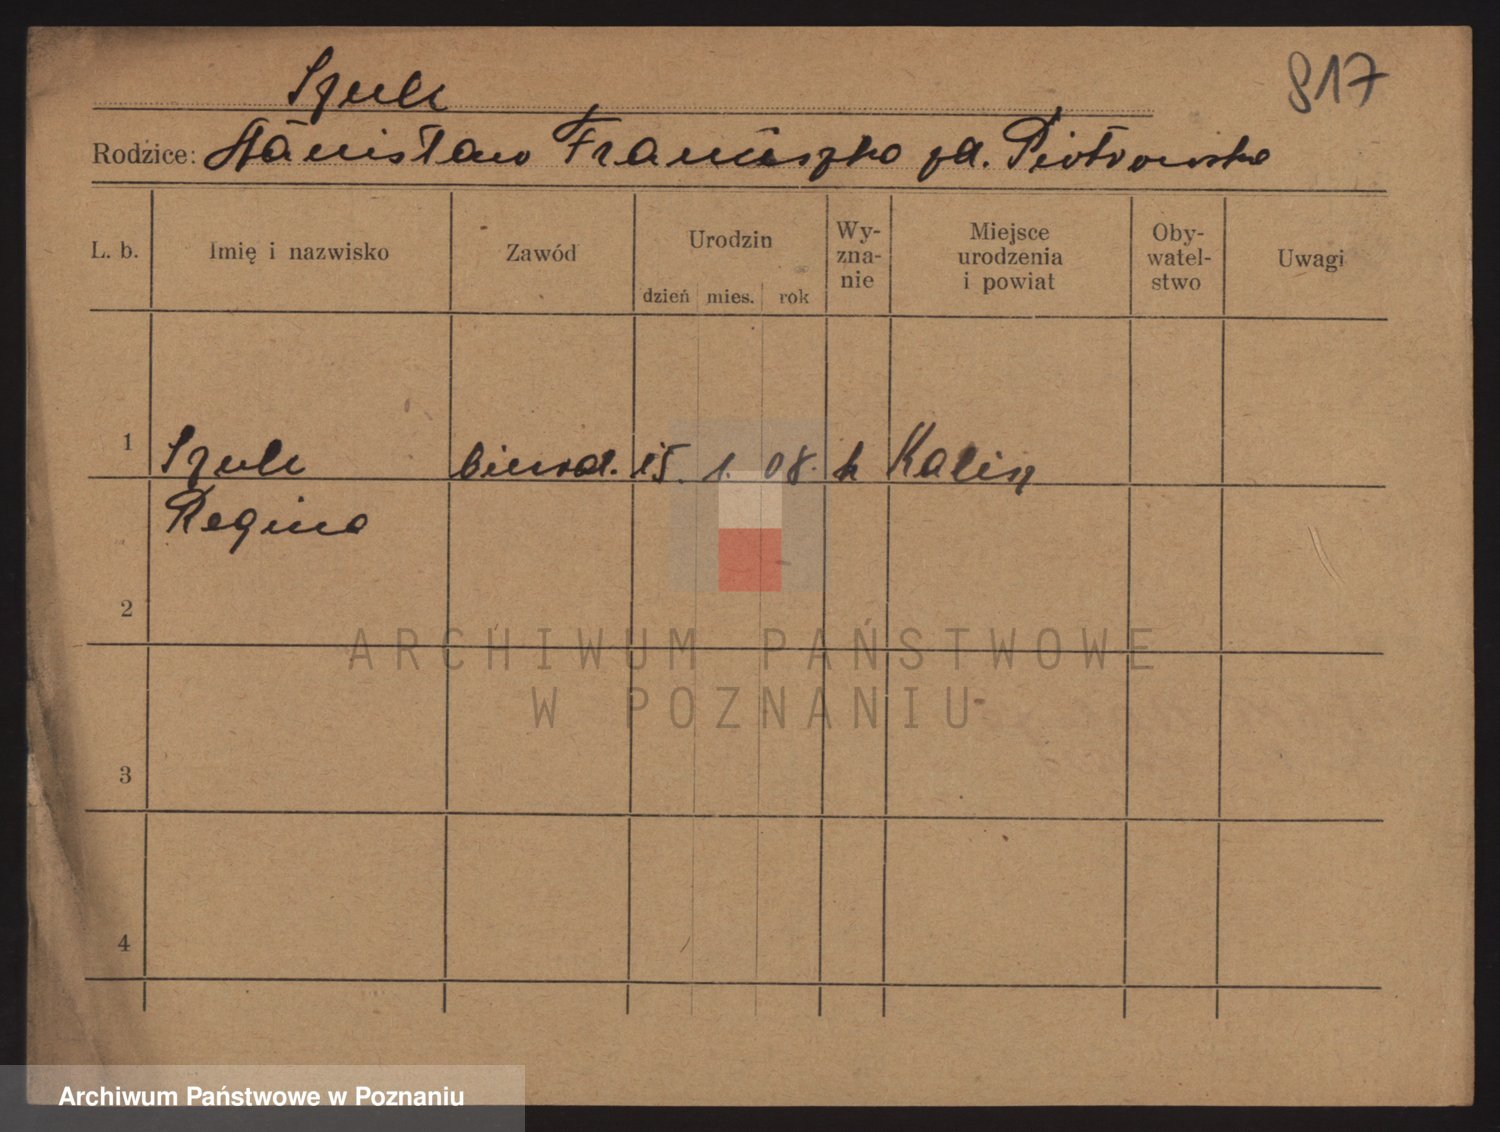 817
Szulc
Rodzice: Stanisław Franciszka zd. Piotrowska
L. b. Imię i nazwisko Zawód Urodzin dzień mies. rok Wy-zna-nie Miejsce urodzenia i powiat Oby-watel-stwo Uwagi
1 Szulc 15. 1. 08. k Kalisz
Regina
2
3
4
ARCHIWUM PAŃSTWOWE
W POZNANIU
Archiwum Państwowe w Poznaniu